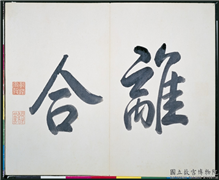 離合
國立故宮博物院